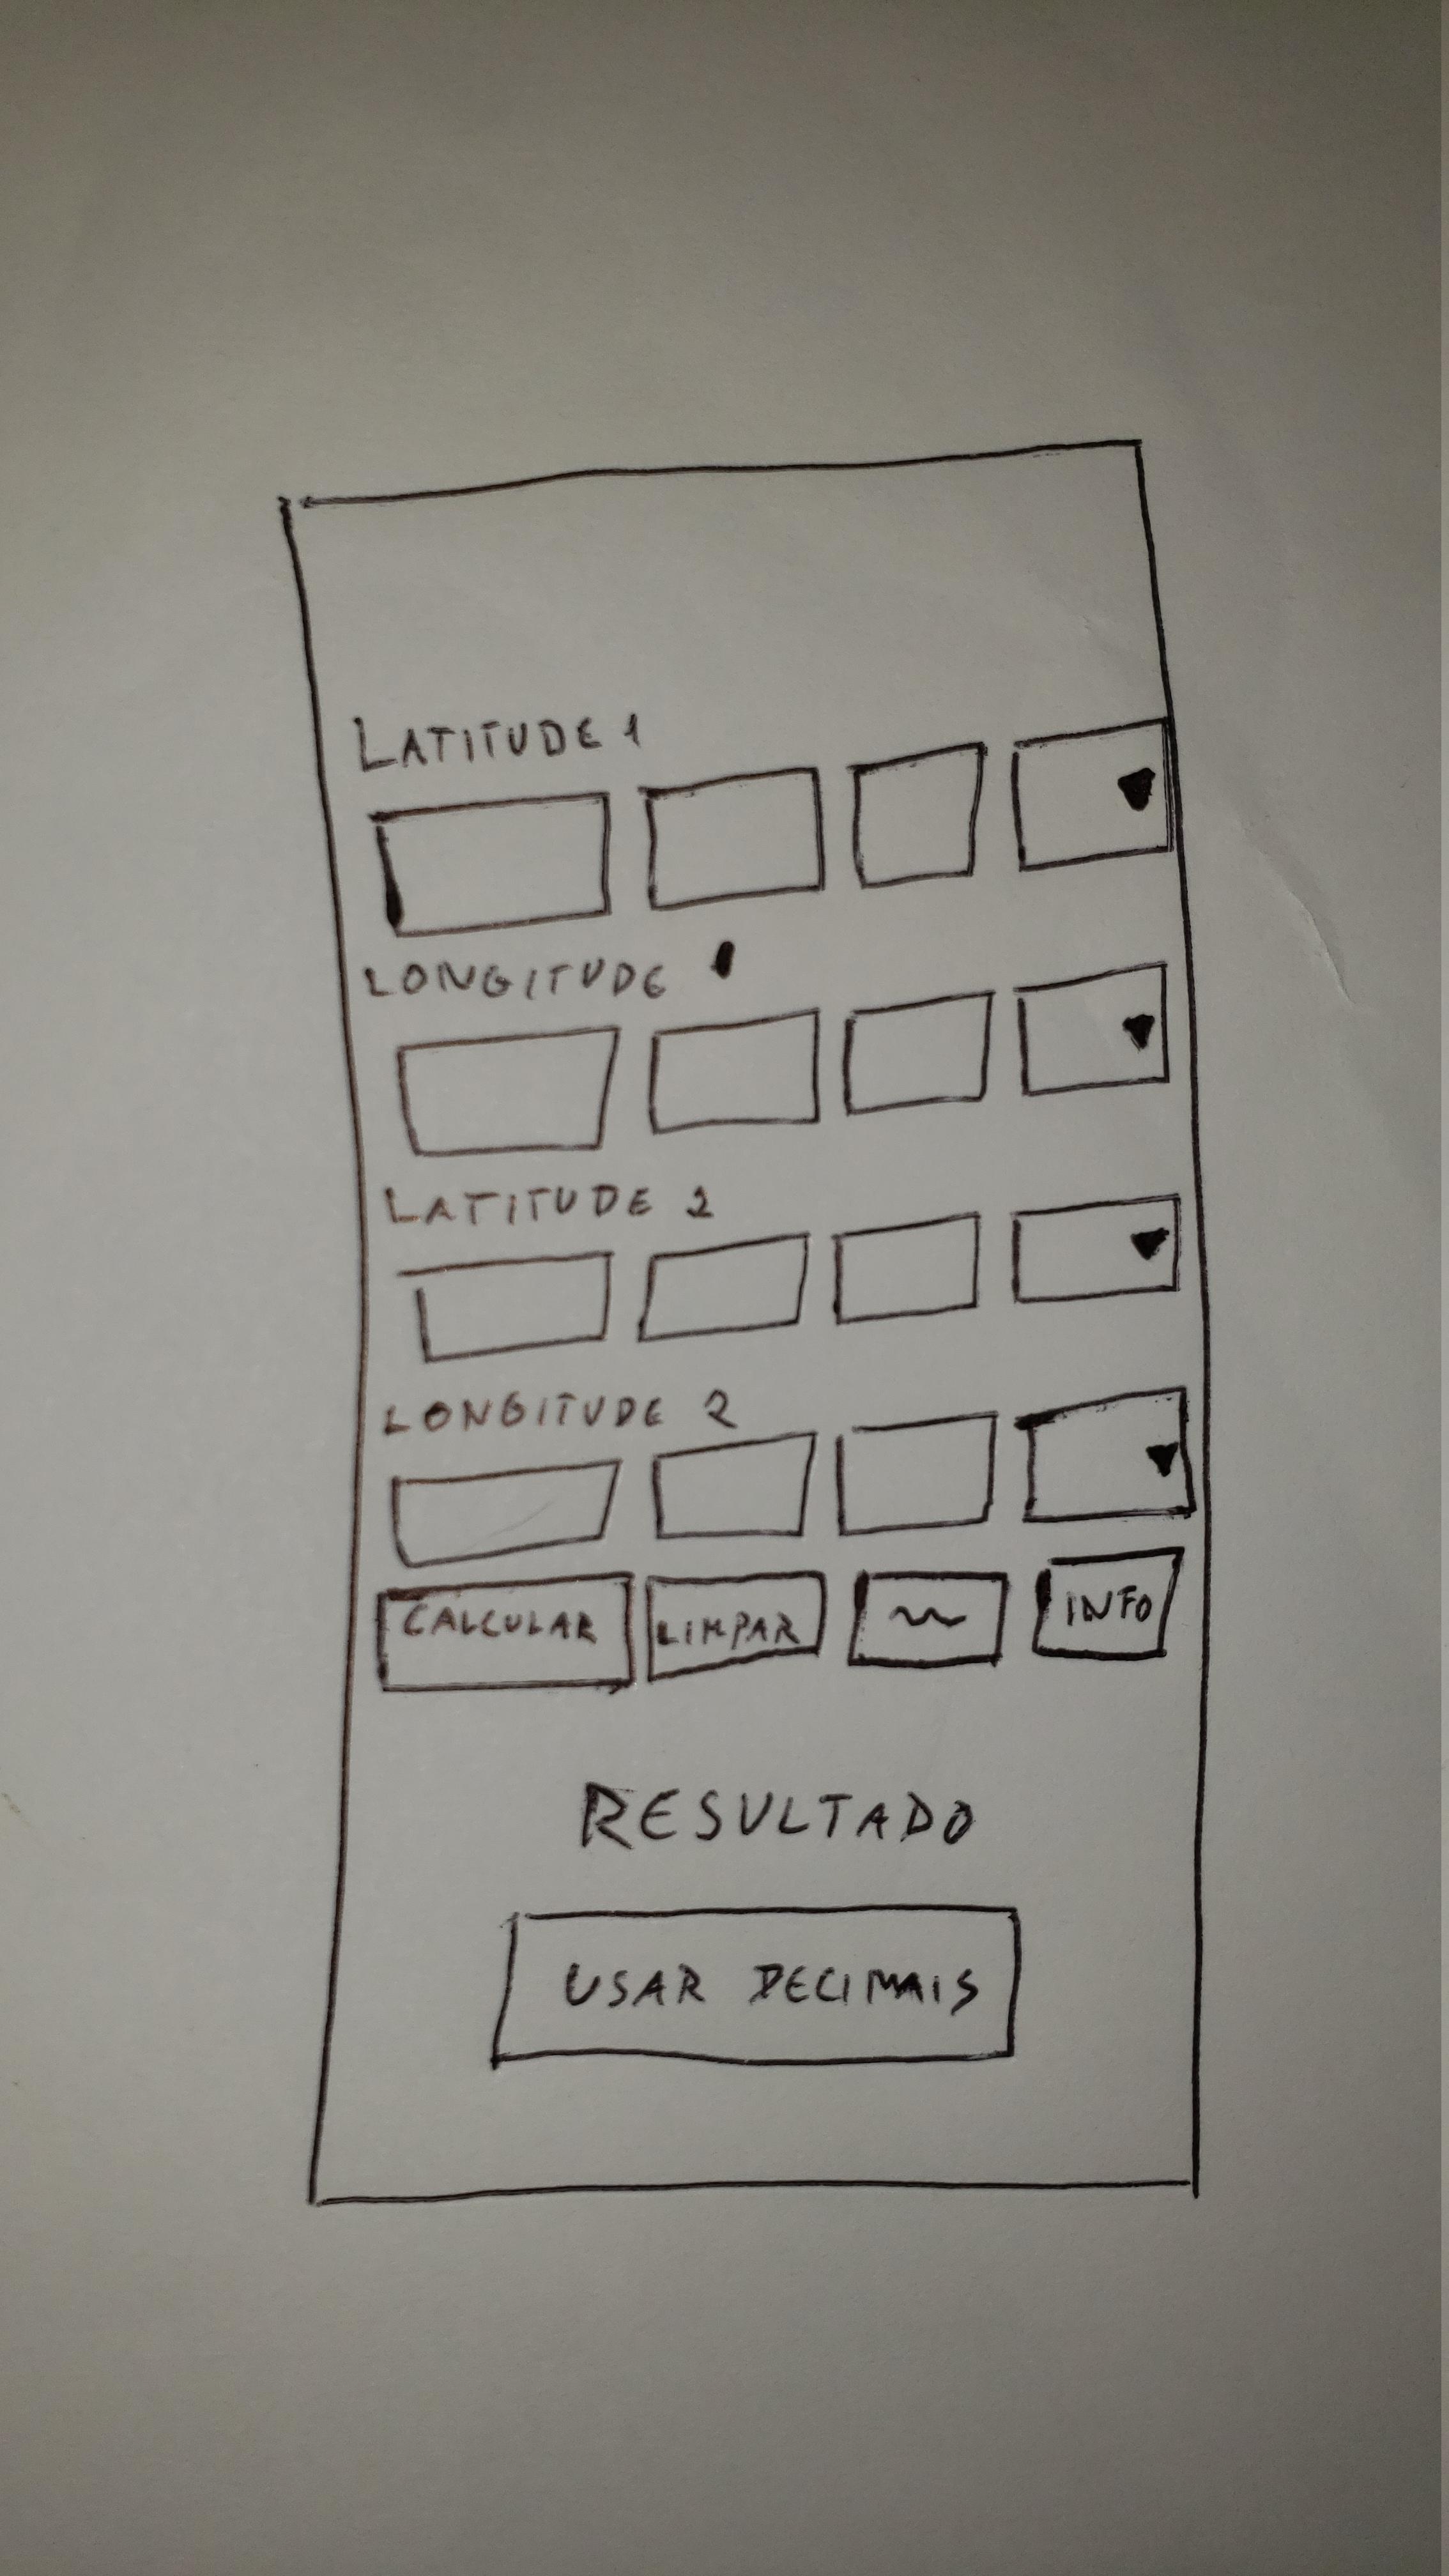 LATITUDE 1
LONGITUDE 1
LATITUDE 2
LONGITUDE 2
CALCULAR LIMPAR INFO
RESULTADO
USAR DECIMAIS